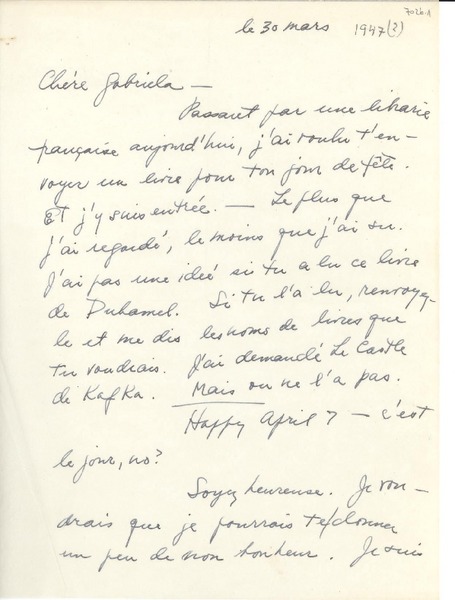 7026.1
le 30 mars 1947(?)
Chére Gabriela —
Passant par une librarie
française aujourd'hui, j'ai voulu t'en-
voyer un livre pour ton jour de fête.
Et j'y suis entrée. — Le plus que
j'ai regardé, le moins que j'ai su.
J'ai pas une idée si tu a lu ce livre
de Duhamel. Si tu l'a lu, renvoye-
le et me dis les noms de livres que
tu voudrais. J'ai demandé Le Castle
de Kafka. Mais on ne l'a pas.
Happy April 7 — c'est
le jour, no?
Soyez heureuse. Je vou-
drais que je pourrais te donner
un peu de mon bonheur. Je suis